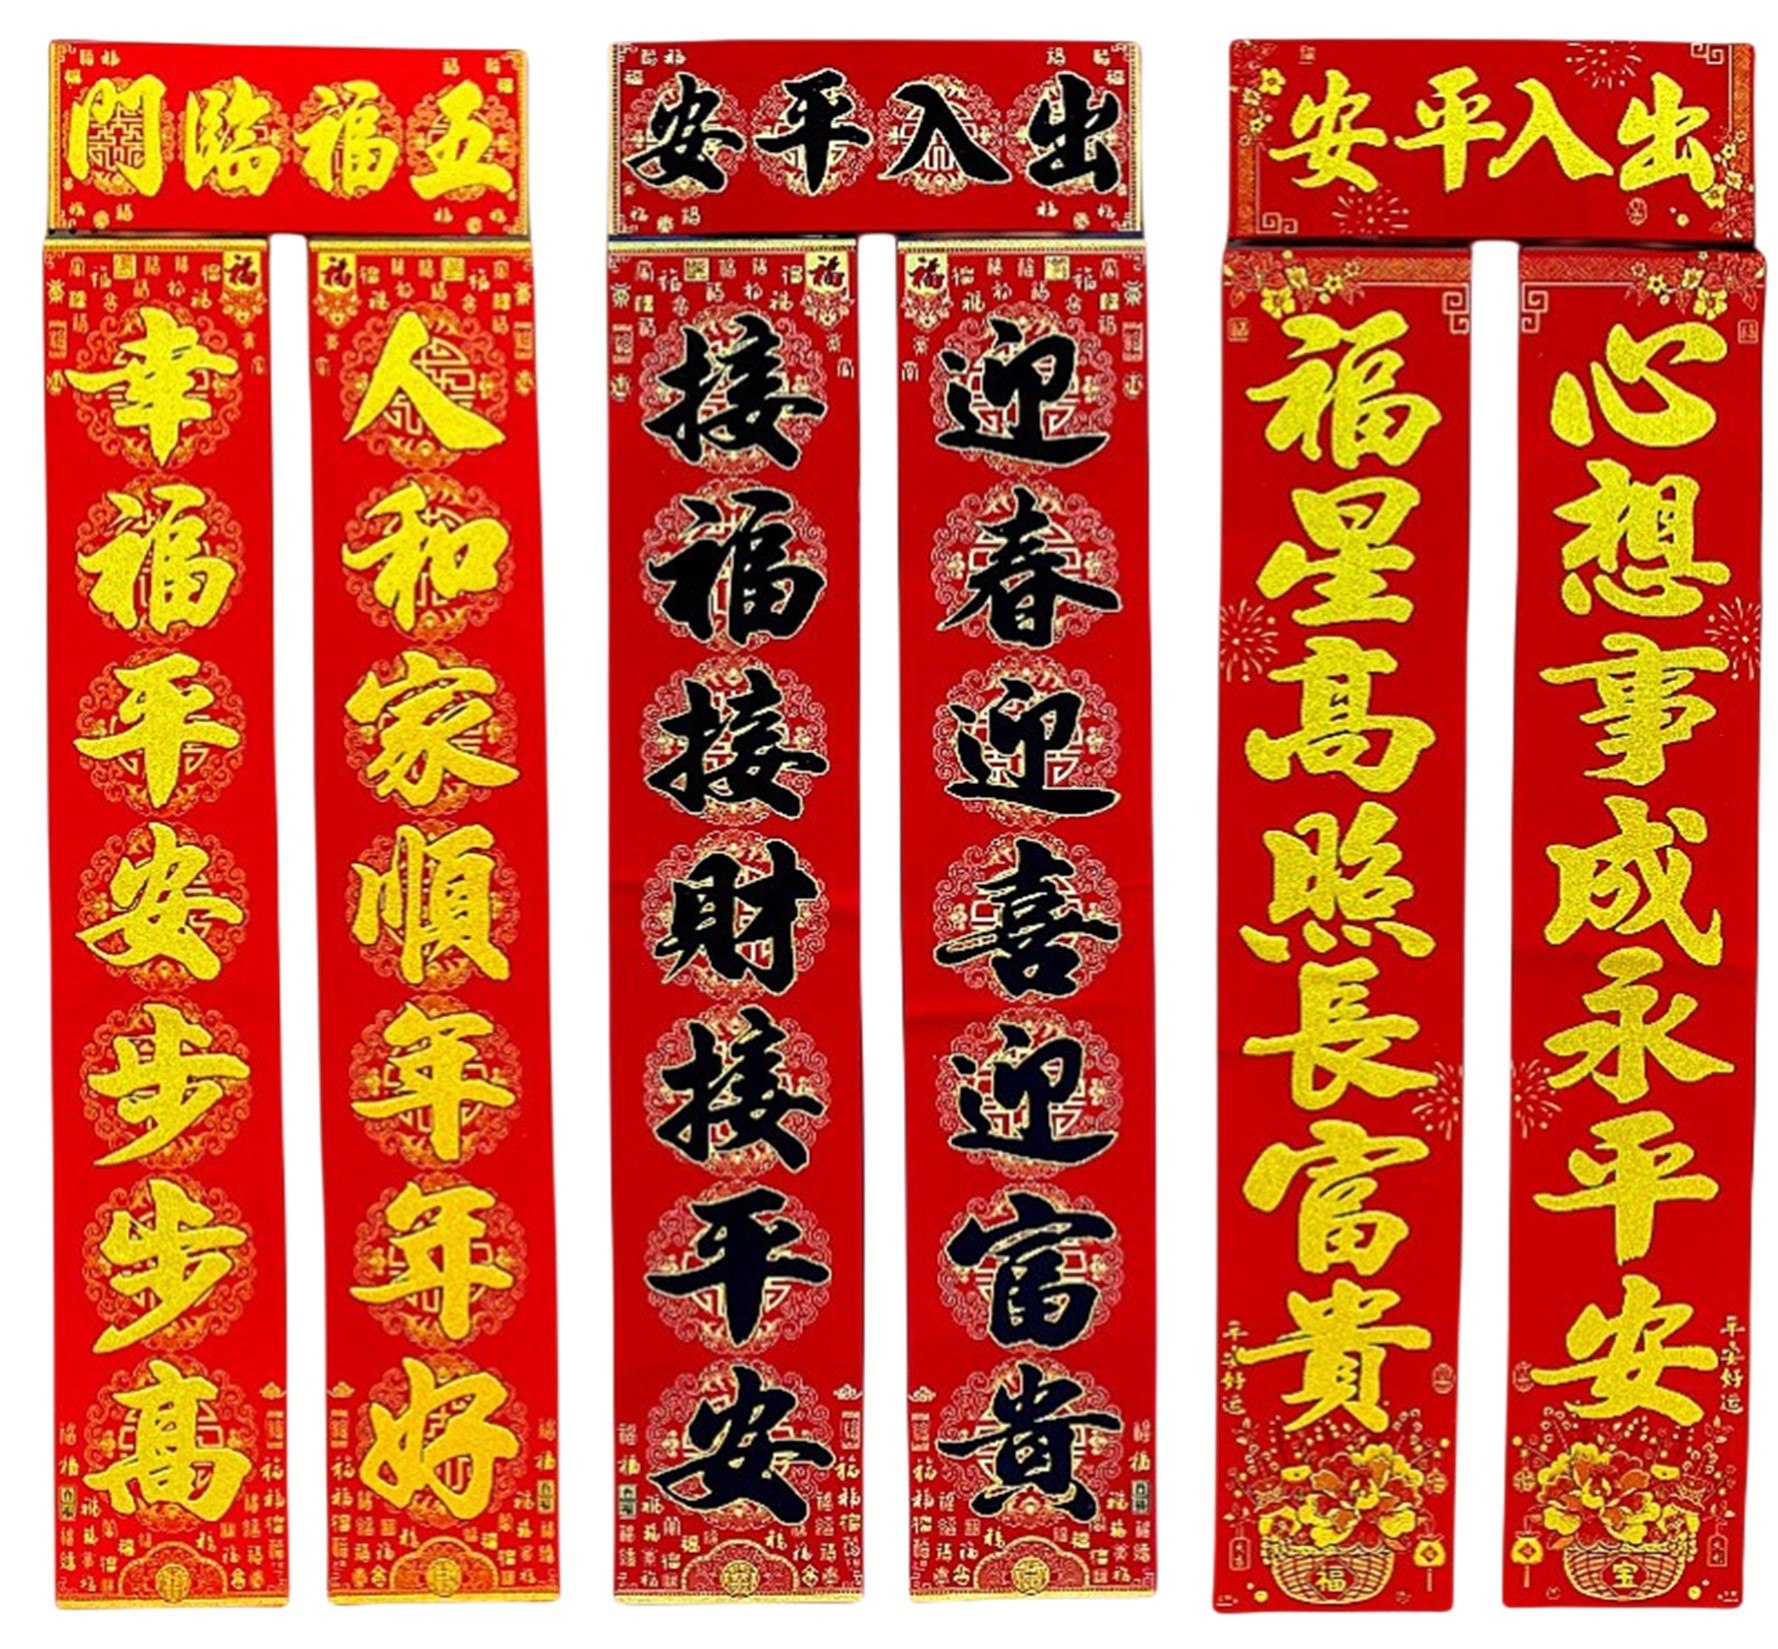 五福臨門
人和家順年年好
幸福平安步步高
出入平安
迎春迎喜迎富貴
接福接財接平安
出入平安
心想事成永平安
福星高照長富貴
平安好运
平安好运
福
宝